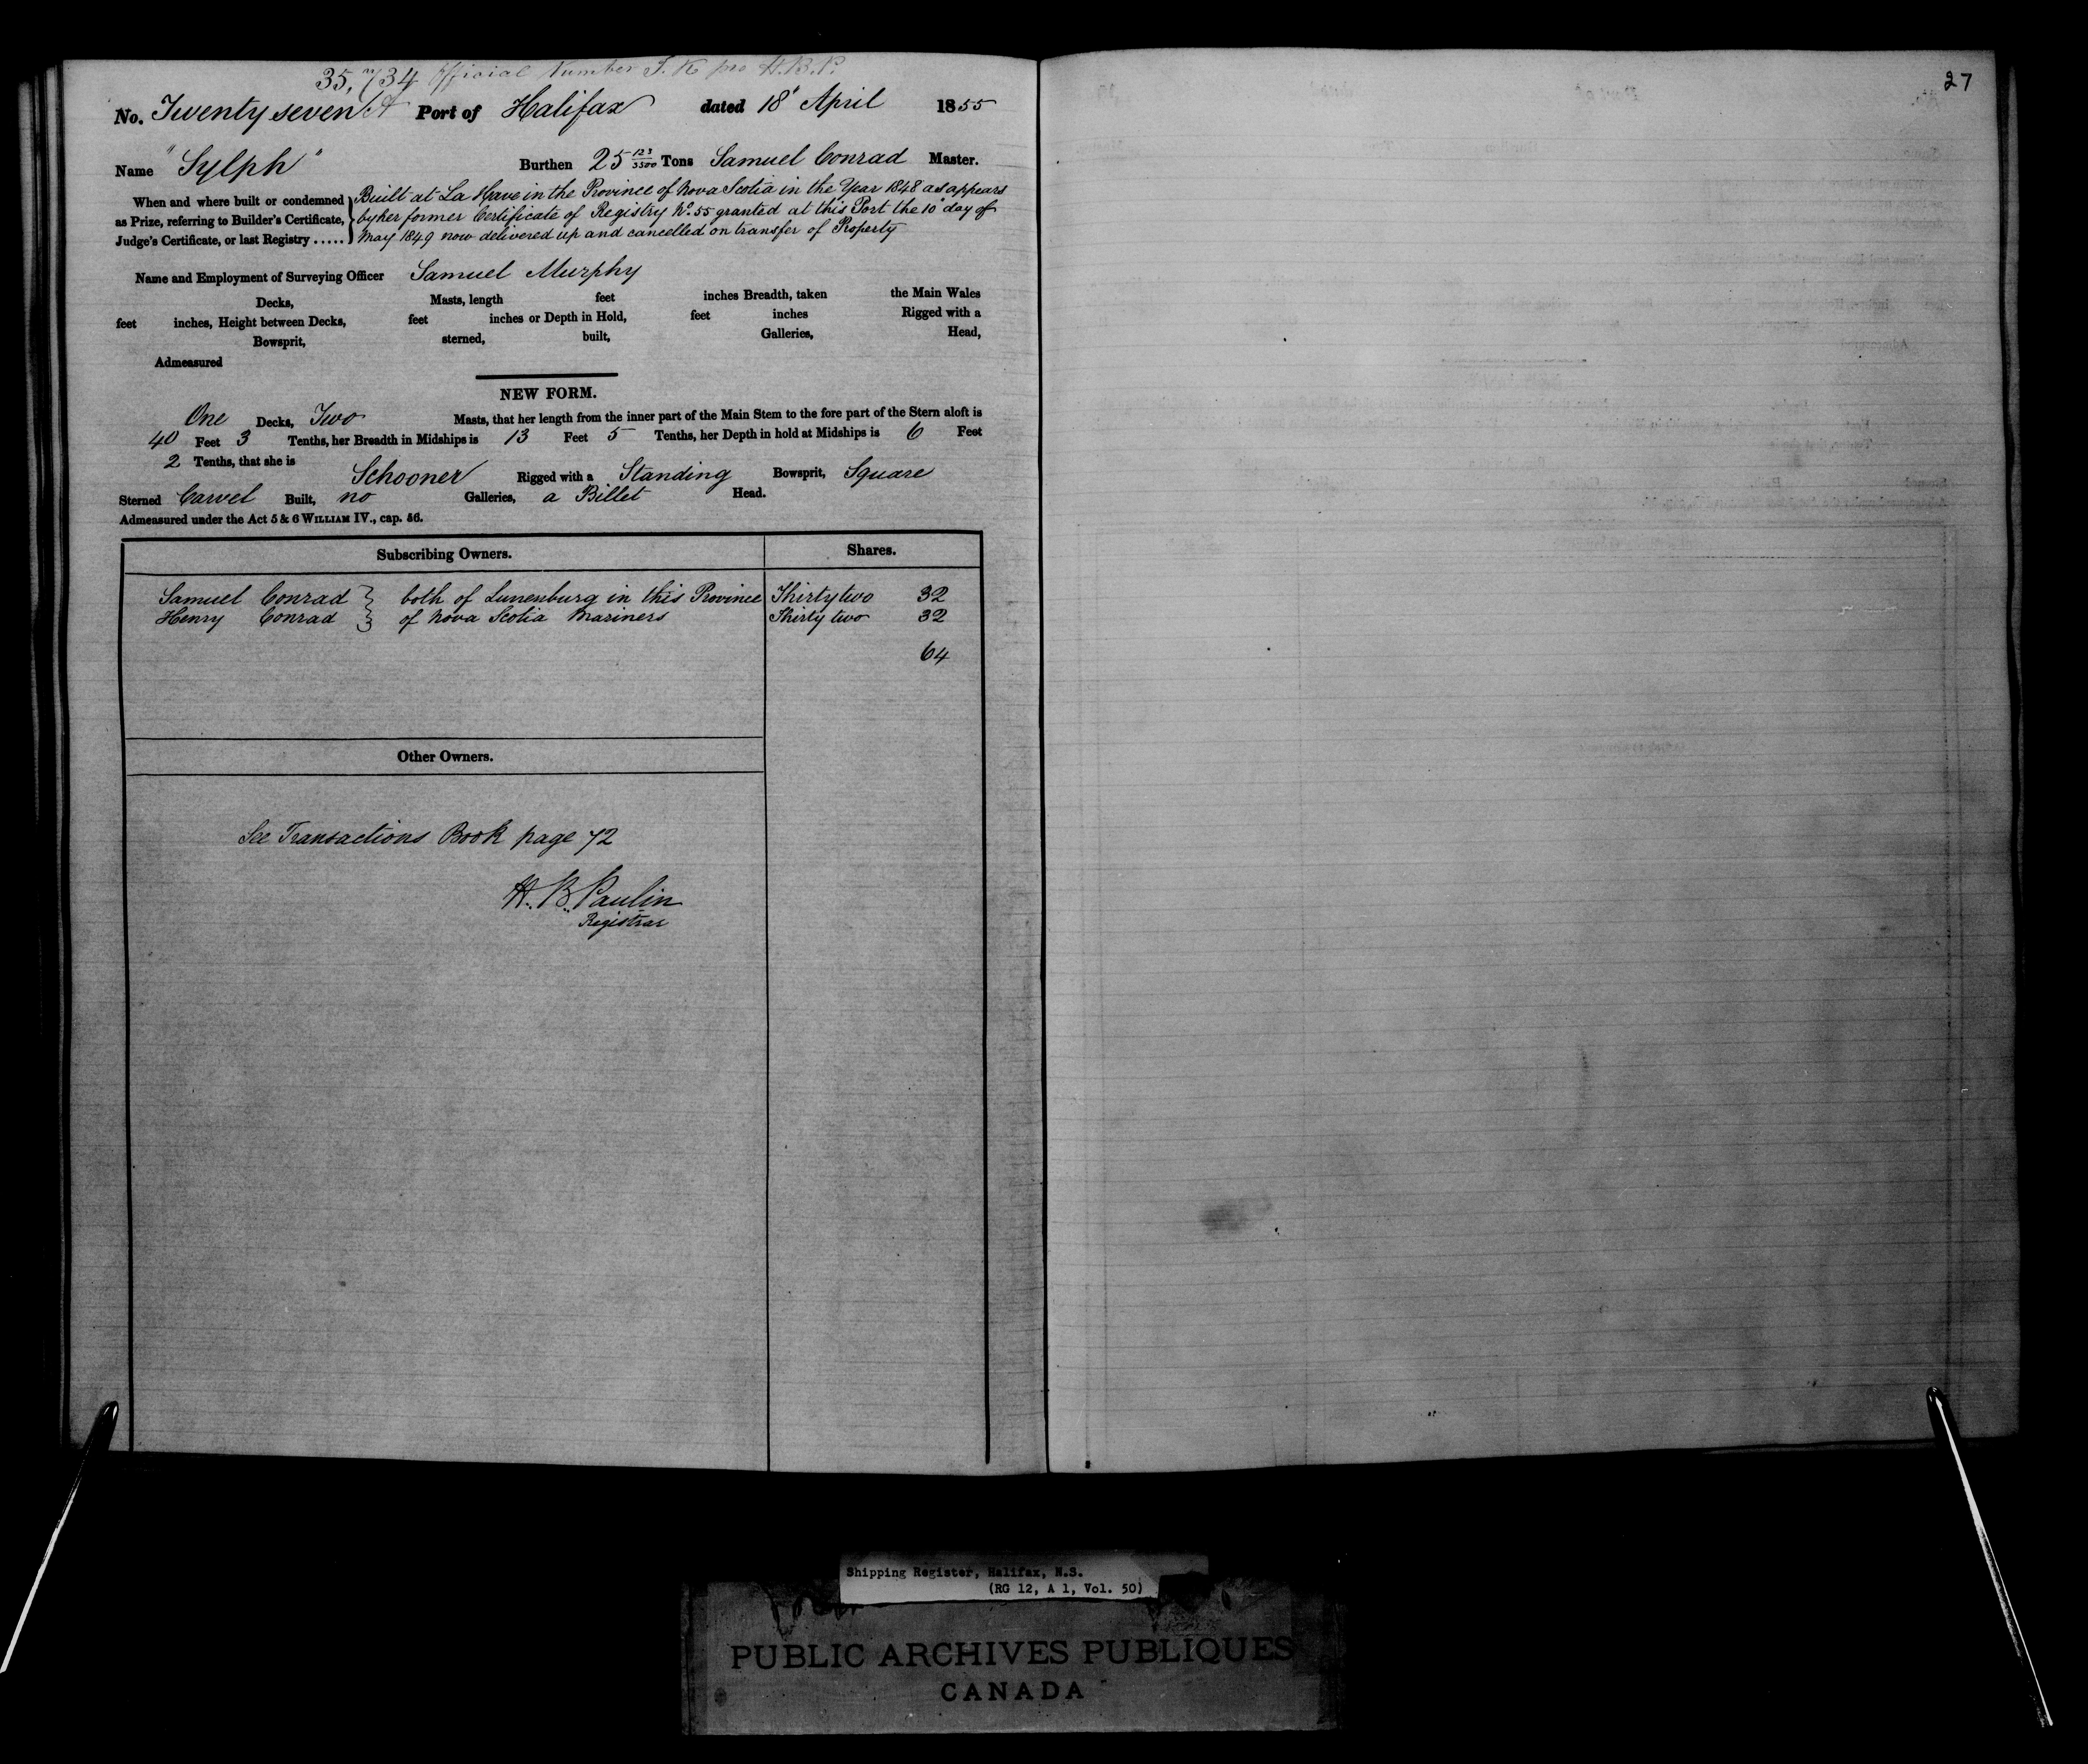 35,734 Official Number J. K pro H.B.P.
No. Twenty seven Port of Halifax dated 18' April 1855
Name "Sylph" Burthen 25 123/3500 Tons Samuel Conrad Master.
When and where built or condemned as Prize, referring to Builder's Certificate, Judge's Certificate, or last Registry .....
Built at La Have in the Province of Nova Scotia in the Year 1848 as appears
by her former Certificate of Registry No. 55 granted at this Port the 10' day of
May 1849 now delivered up and cancelled on transfer of Property
Name and Employment of Surveying Officer Samuel Murphy
Decks, Masts, length feet inches Breadth, taken the Main Wales
feet inches, Height between Decks, feet inches or Depth in Hold, feet inches Rigged with a
Bowsprit, sterned, built, Galleries, Head,
Admeasured
NEW FORM.
One Decks, Two Masts, that her length from the inner part of the Main Stem to the fore part of the Stern aloft is
40 Feet 3 Tenths, her Breadth in Midships is 13 Feet 5 Tenths, her Depth in hold at Midships is 6 Feet
2 Tenths, that she is Schooner Rigged with a Standing Bowsprit, Square
Sterned Carvel Built, no Galleries, a Billet Head.
Admeasured under the Act 5 & 6 WILLIAM IV., cap. 56.
Subscribing Owners. Shares.
Samuel Conrad } both of Lunenburg in this Province Thirty two 32
Henry Conrad } of Nova Scotia Mariners Thirty two 32
64
Other Owners.
See Transactions Book page 72
H. B. Paulin
Registrar
27
Shipping Register, Halifax, N.S.
(RG 12, A 1, Vol. 50)
PUBLIC ARCHIVES PUBLIQUES
CANADA